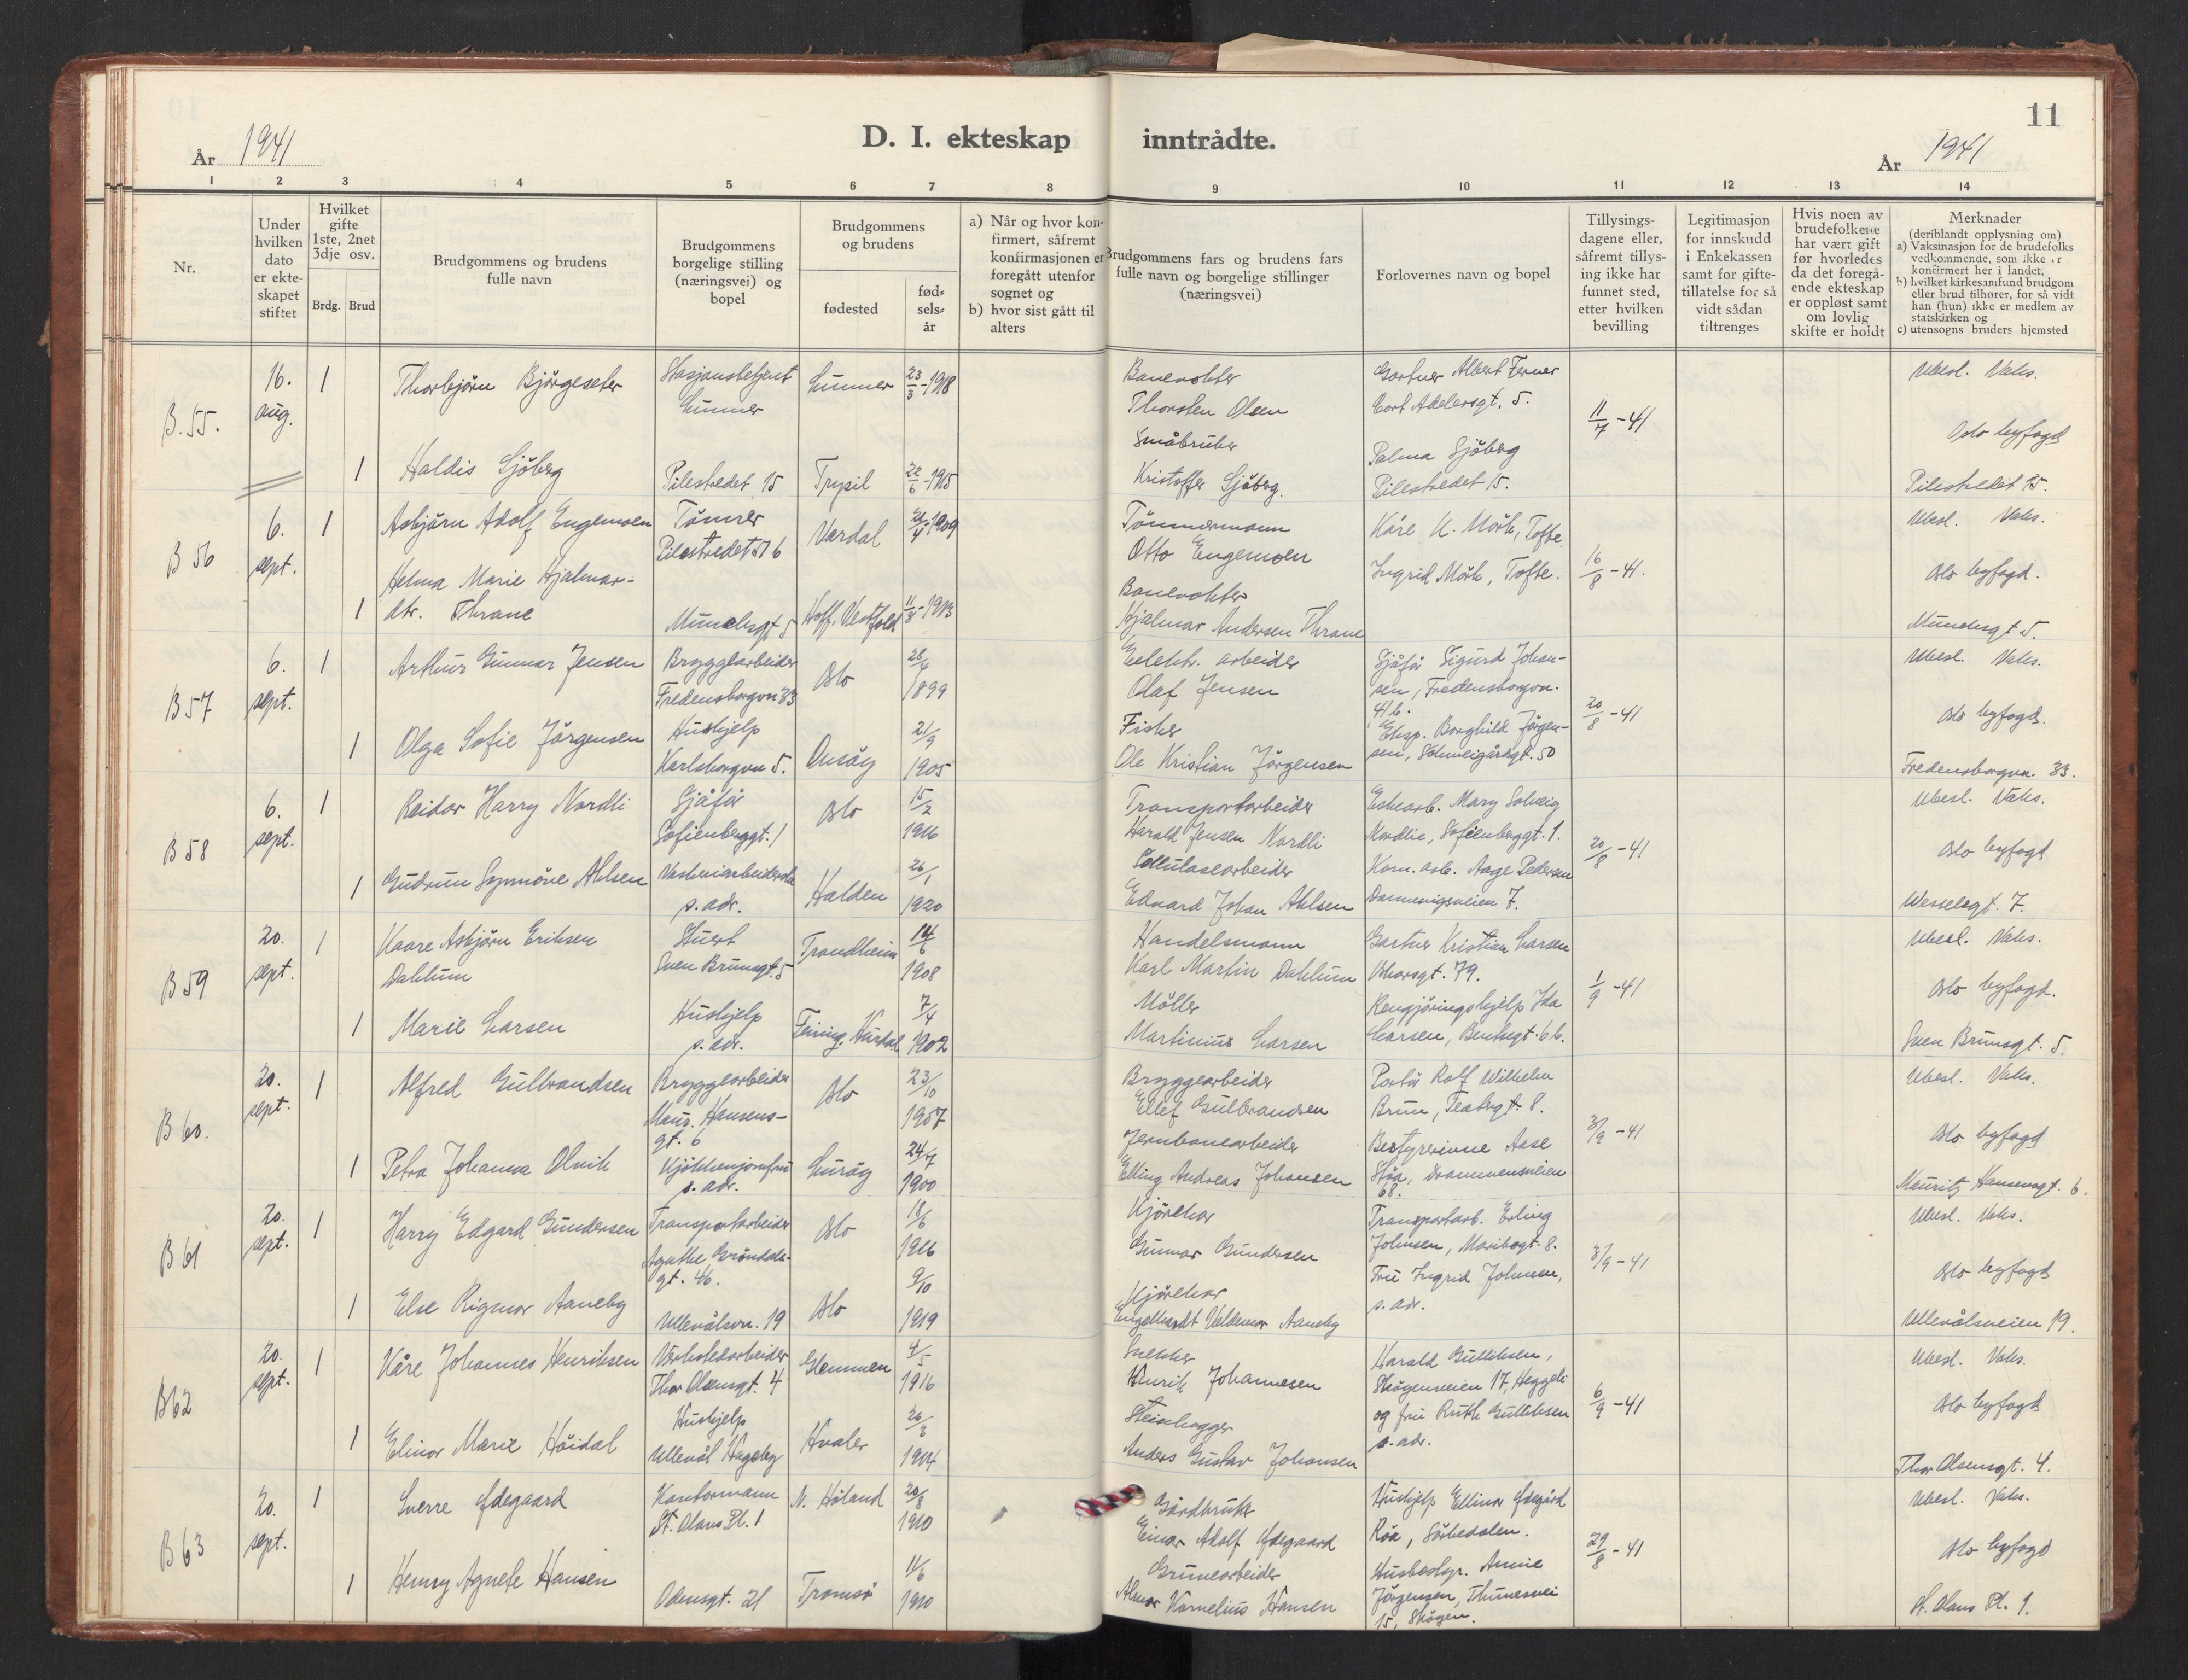 11
År 1941
D. I. ekteskap inntrådte.
År 1941
1 2 3 4 5 6 7 8 9 10 11 12 13 14
Nr.
Under hvilken dato er ekteskapet stiftet
Hvilket gifte 1ste, 2net 3dje osv.
Brdg. Brud
Brudgommens og brudens fulle navn
Brudgommens borgelige stilling (næringsvei) og bopel
Brudgommens og brudens
fødested
fød-
sels-
år
a) Når og hvor kon-
firmert, såfremt
konfirmasjonen er
foregått utenfor
sognet og
b) hvor sist gått til
alters
Brudgommens fars og brudens fars
fulle navn og borgelige stillinger
(næringsvei)
Forlovernes navn og bopel
Tillysings-
dagene eller,
såfremt tillys-
ing ikke har
funnet sted,
etter hvilken
bevilling
Legitimasjon
for innskudd
i Enkekassen
samt for gifte-
tillatelse for så
vidt sådan
tiltrenges
Hvis noen av
brudefolkene
har vært gift
før hvorledes
da det foregå-
ende ekteskap
er oppløst samt
om lovlig
skifte er holdt
Merknader
(deriblandt opplysning om)
a) Vaksinasjon for de brudefolks
vedkommende, som ikke er
konfirmert her i landet,
b) hvilket kirkesamfund brudgom
eller brud tilhører, for så vidt
han (hun) ikke er medlem av
statskirken og
c) utensogns bruders hjemsted
B. 55.
16. aug.
1
Thorbjørn Bjørgeseter
Stasjonsbetjent
Lunner
Lunner
23/3-1918
Banevokter
Thorsten Olsen
Gartner Albert Ferner
Cort Adelersgt. 5.
11/7-41
Ubesl. Vaks.
Oslo byfogd
1
Haldis Sjöberg
Pilestredet 15
Trysil
22/6-1915
Småbruker
Kristoffer Sjöberg.
Palma Sjöberg
Pilestredet 15.
Pilestredet 15.
B 56
6. sept.
1
Asbjørn Adolf Engemoen
Tömrer
Pilestredet
Vardal
Tömmermann
Otto Engemoen
Kåre K. Mörk, Tofte.
Ingrid Mörk, Tofte.
16/8-41.
Ubesl. Vaks.
Oslo byfogd.
1
Helma Marie Hjalmar-
dtr. Thrane
Munchsgt 5
Hoff. Vestfold
11/8-1913
Banevokter
Hjalmar Andersen Thrane
Munchsgt 5.
B 57
6. sept.
1
Arthur Gunnar Jensen
Bryggearbeider
Fredensborgvn 33
Oslo
28/4
1899
arbeider
Olaf Jensen
Sjåför Sigurd Johan-
sen, Fredensborgvn.
41 b.
20/8-41
Ubesl. Vaks.
Oslo byfogd.
1
Olga Sofie Jörgensen
Hushjelp
Karlsborgvn 5.
Onsöy
21/9
1905
Fisker
Ole Kristian Jörgensen
Eksp. Borghild Jörgen-
sen, 50
Fredensborgvn. 33.
B 58
6. sept.
1
Reidar Harry Nordli
Sjåför
Sofienberggt. 1
Oslo
15/2
1916
Transportarbeider
Harald Jensen Nordli
Eskearb. Mary Solveig
Nordlie, Sofienberggt. 1.
20/8-41
Ubesl. Vaks.
Oslo byfogd
1
Gudrun Synnöve Ahlsen
s. adr.
Halden
26/1
1920
Cellulosearbeider
Edvard Johan Ahlsen
Kom. arb. Aage Pedersen
Dannevigsveien 7.
Wesselsgt. 7.
B 59
20. sept.
1
Kaare Asbjørn Eriksen
Dahlum
Stuert
Sven Brunsgt. 5
Trondheim
14/6
1908
Handelsmann
Karl Martin Dahlum
Gartner Kristian Larsen
79.
1/9-41
Ubesl. Vaks.
Oslo byfogd.
1
Marie Larsen
Hushjelp
s. adr.
Feiring, Hurdal
7/4
1902
Möller
Martinius Larsen
Rengjöringshjelp Ida
Larsen, Bentsegt. 6 b.
Sven Brunsgt. 5.
B 60.
20. sept.
1
Alfred Gulbrandsen
Bryggearbeider
Maur. Hansens-
gt. 6
Oslo
23/10
1907
Bryggearbeider
Ellef Gulbrandsen
Portör Rolf Wilhelm
Brun, Teatergt. 8.
3/9-41
Ubesl. Vaks.
Oslo byfogd
1
Petra Johanna Olvik
Kjökkenjomfru
s. adr.
Luröy
24/7
1900
Jernbanearbeider
Elling Andreas Johansen
Bestyrerinne Aase
Stöa, Drammensveien
68.
Mauritz Hansensgt. 6.
B 61
20. sept.
1
Harry Edgard Gundersen
Transportarbeider
Agathe Gröndals-
gt. 46.
Oslo
18/6
1916
Kjörekar
Gunnar Gundersen
Transportarb. Erling
Johnsen, Maribogt. 8.
3/9-41
Ubesl. Vaks.
Oslo byfogd
1
Else Rigmor Aaneby
Ullevålsvn. 19
Oslo
9/10
1919
Kjörekar
Engelhardt Valdemar Aaneby
Fru Ingrid Johnsen,
s. adr.
Ullevålsveien 19.
B 62
20. sept.
1
Kåre Johannes Henriksen
Verkstedarbeider
Thor Olsensgt. 4
Glemmen
4/5
1916
Snekker
Henrik Johannesen
Harald Gulliksen,
Skögenveien 17, Heggeli
og fru Ruth Gulliksen
s. adr.
6/9-41
Ubesl. Vaks.
Oslo byfogd
1
Elinor Marie Höidal
Hushjelp
Ullevål Hageby
Hvaler
26/3
1904
Steinhogger
Anders Gustav Johansen
Thor Olsensgt. 4.
B 63
20. sept.
1
Sverre Ödegaard
Kontormann
St. Olavs Pl. 1
N. Höland
20/8
1910
Gårdbruker
Einar Adolf Ödegaard
Hushjelp Ellinor Ödegård
Röa, Sörkedalen.
29/8-41
Ubesl. Vaks.
Oslo byfogd
1
Henny Agnete Hansen
Odinsgt. 21
Tromsö
11/6
1910
Gruvearbeider
Kornelius Hansen
Husbestyr. Annie
Jörgensen,
15, Skögen.
St. Olavs Pl. 1.